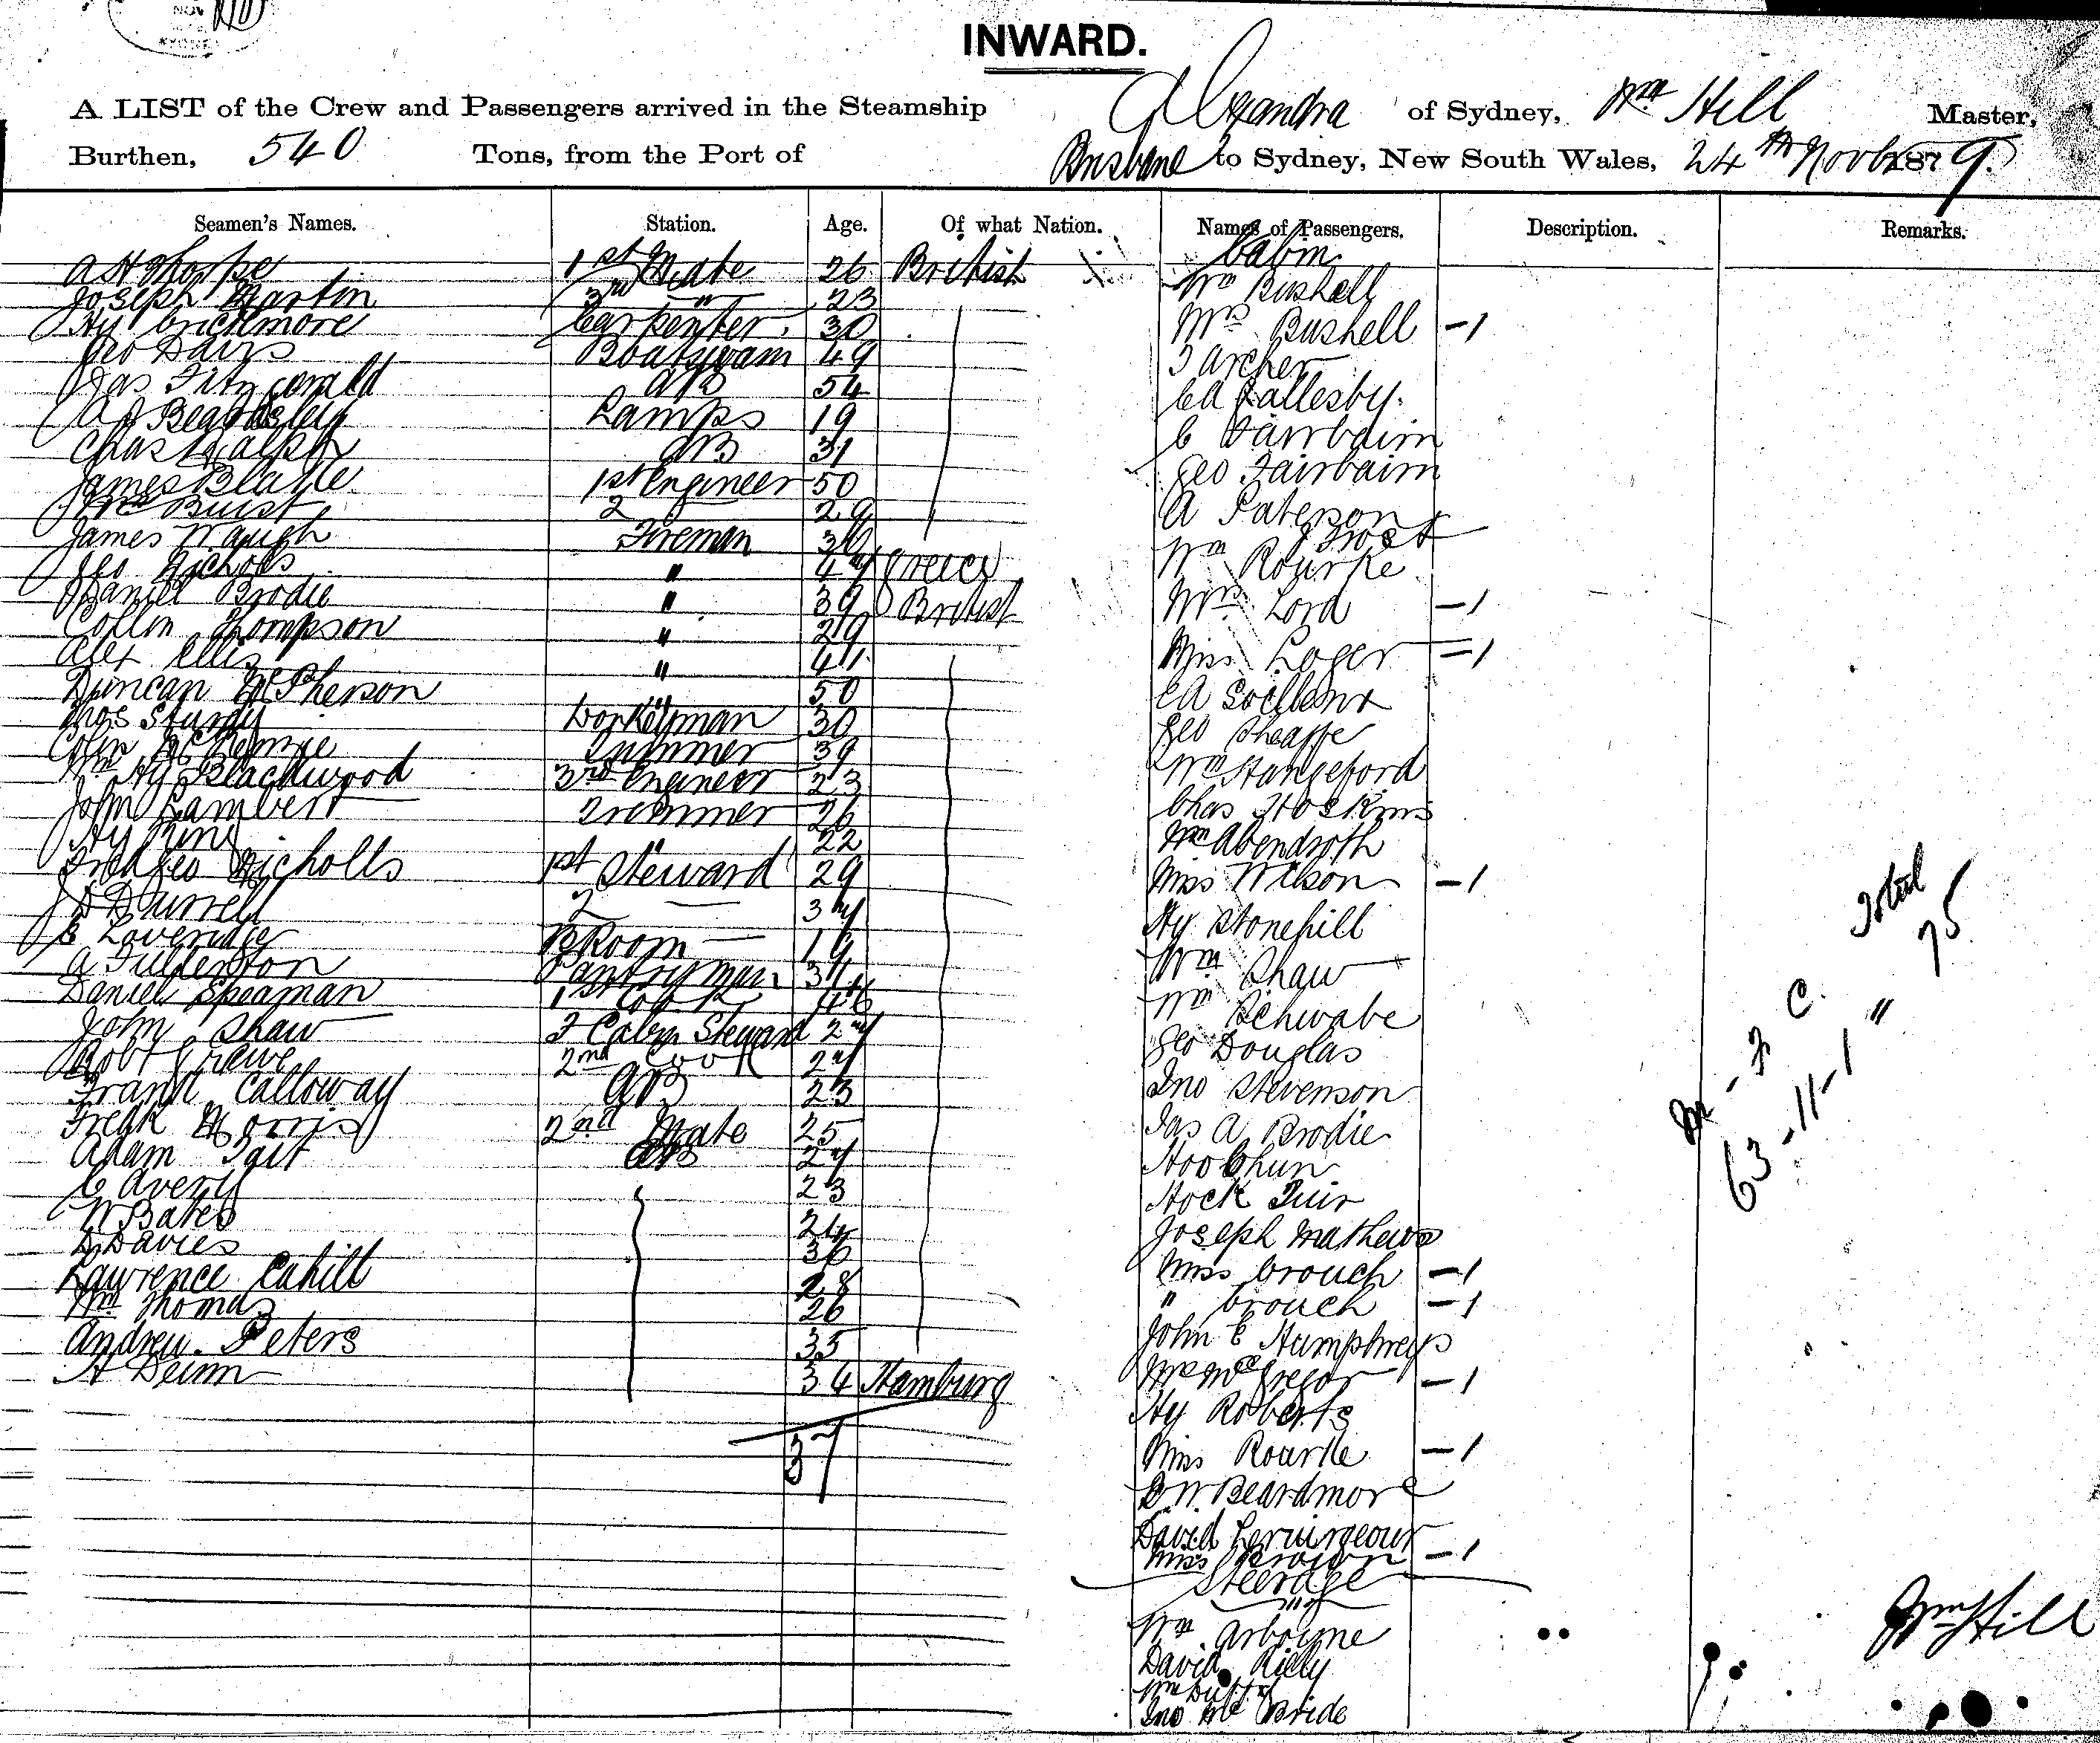 NOV
INWARD.
A LIST of the Crew and Passengers arrived in the Steamship Alexandra of Sydney, Wm Hill Master,
Burthen, 540 Tons, from the Port of Brisbane to Sydney, New South Wales, 24th Novbr 1879.
Seamen's Names. Station. Age. Of what Nation. Names of Passengers. Description. Remarks.
Cabin
A H Thorpe 1st Mate 26 British Wm Bushell
Joseph Martin 3rd " 23
Hy Crichmore Carpenter 30 Mrs Bushell -1
Geo Davis Boatswain 49 T Archer
Jas Fitzgerald AB 54
A J Beardsley Lamps 19
Chas Ralph AB 31 C Fairbairn
James Blake 1st Engineer 50 Geo Fairbairn
Wm Buist 2 29 A Paterson
J Frost
James Waugh Fireman 36 Wm Rourke
Geo Nichols " Greece
Daniel Brodie " 39 British Mrs Lord -1
Collin Thompson " 29
Alex Ellis " 41 Miss Loger =1
Duncan McPherson 50
Thos Sturdy Donkeyman 30 Geo Sheaffe
Colin McKenzie Trimmer 39
Wm Hy Blackwood 3rd Engineer 23 Wm Hangeford
John Lambert Trimmer 26 Chas Hoskins
Hy King " 22 Wm Abendroth
Fred Geo Nicholls 1st Steward 29 Miss Wilson -1
D Durrell 2 — 34 Hy Stonehill
E Loveridge B Room — 19
A Fullerton Pantryman 31 Wm Shaw
Daniel Speaman 1st Cook 46 Wm Schwabe
John Shaw F Cabin Steward 27 Geo Douglas
Robt Grewe 2nd Cook 27
Frank Calloway AB 23 Jno Stevenson
Fredk Morris 2nd Mate 25 Jas A Brodie
Adam Tait AB 27 Hoo Chun
C Avery 23 Hock Quir
W Bates 24 Joseph Mathews
D Davies 36
Lawrence Cahill 28 Miss Crouch -1
Wm Thomas 26 " Crouch -1
Andrew Peters 35 John E Humphreys
H Deinn 34 Hamburg Mrs McGregor -1
37
Hy Roberts
Miss Rourke -1
E W Beardmore
David
Miss Brown -1
Steerage
Wm Arboyne
David Rielly
Wm Duffy
Jno McBride
Total
75
M - F C
63 - 11 - 1 "
Wm Hill